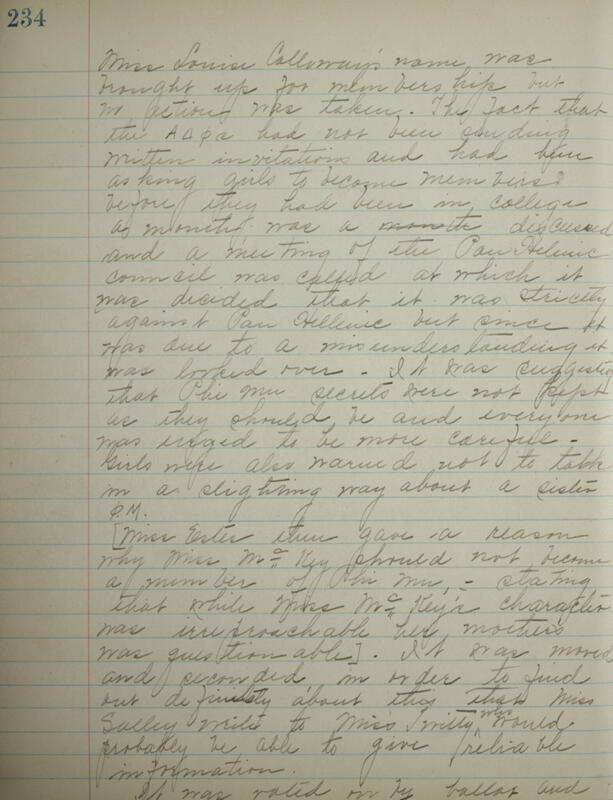 234
Miss Louise Calloway's name was
brought up for membership but
no action was taken. The fact that
the ADPs had not been sending
written invitations and had been
asking girls to become members
before they had been in college
a month was a month discussed
and a meeting of the Pan Hellenic
council was called at which it
was decided that it was strictly
against Pan Hellenic but since it
was due to a misunderstanding it
was looked over - It was suggested
that Phi Mu secrets were not kept
as they should be and every one
was urged to be more careful -
Girls were also warned not to talk
in a slighting way about a sister
Φ.M.
[Miss Estes then gave a reason
why Miss McKey should not become
a member of Phi Mu, - stating
that while Miss McKey's character
was irreproachable her mother's
was questionable]. It was moved
and seconded in order to find
out definitely about this that Miss
Salley write to Miss Twitty who would
probably be able to give reliable
information.
It was voted on by ballot and